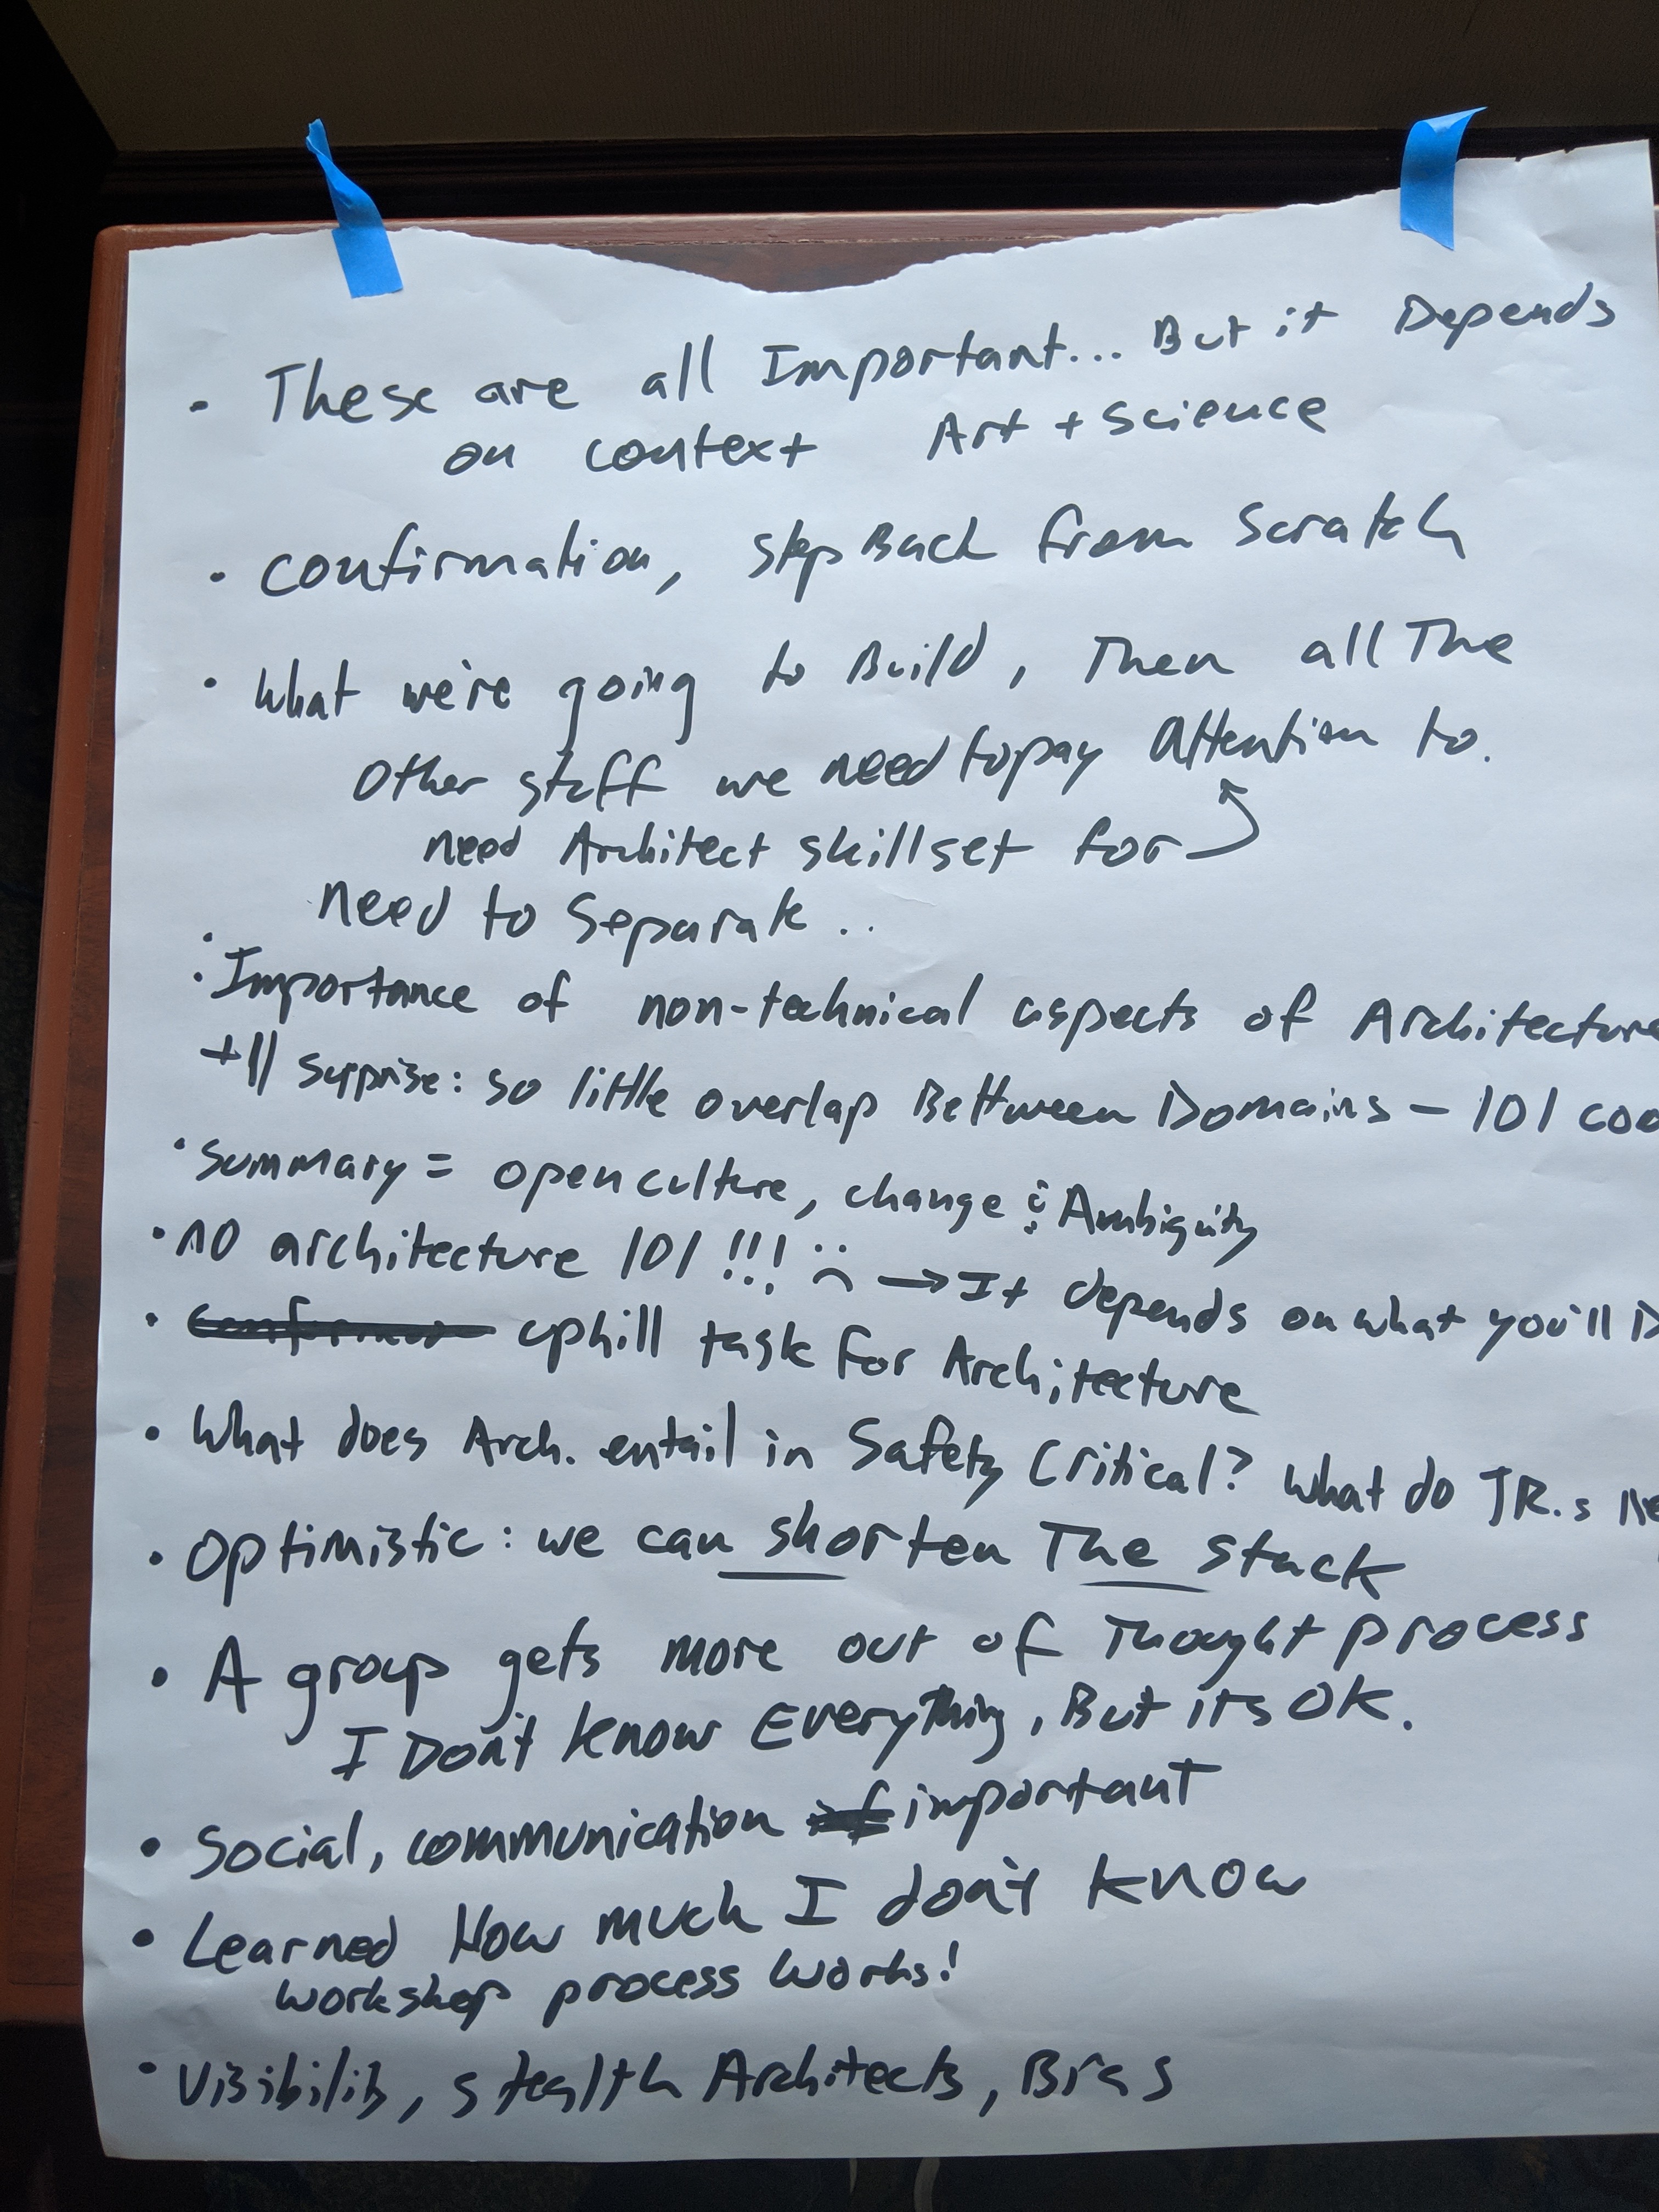 • These are all Important... But it Depends
on context Art + Science
• confirmation, step Back from Scratch
• What we're going to Build, Then all The
Other stuff we need to pay Attention to.
need Architect skillset for
need to Separate ..
• Importance of non-technical aspects of Architecture
+|| Supprise: so little overlap Bettween Domains – 101
• Summary = open culture, change & Ambiguity
• no architecture 101 !!! :( → It depends on what you'll
• uphill task for Architecture
• What does Arch. entail in Safety Critical? What do JR.s
• Optimistic: we can shorten The stack
• A group gets more out of Thought process
I Don't know Everything, But its OK.
• Social, communication important
• Learned How much I don't know
workshop process works!
• Visibility, stealth Architects, Bias